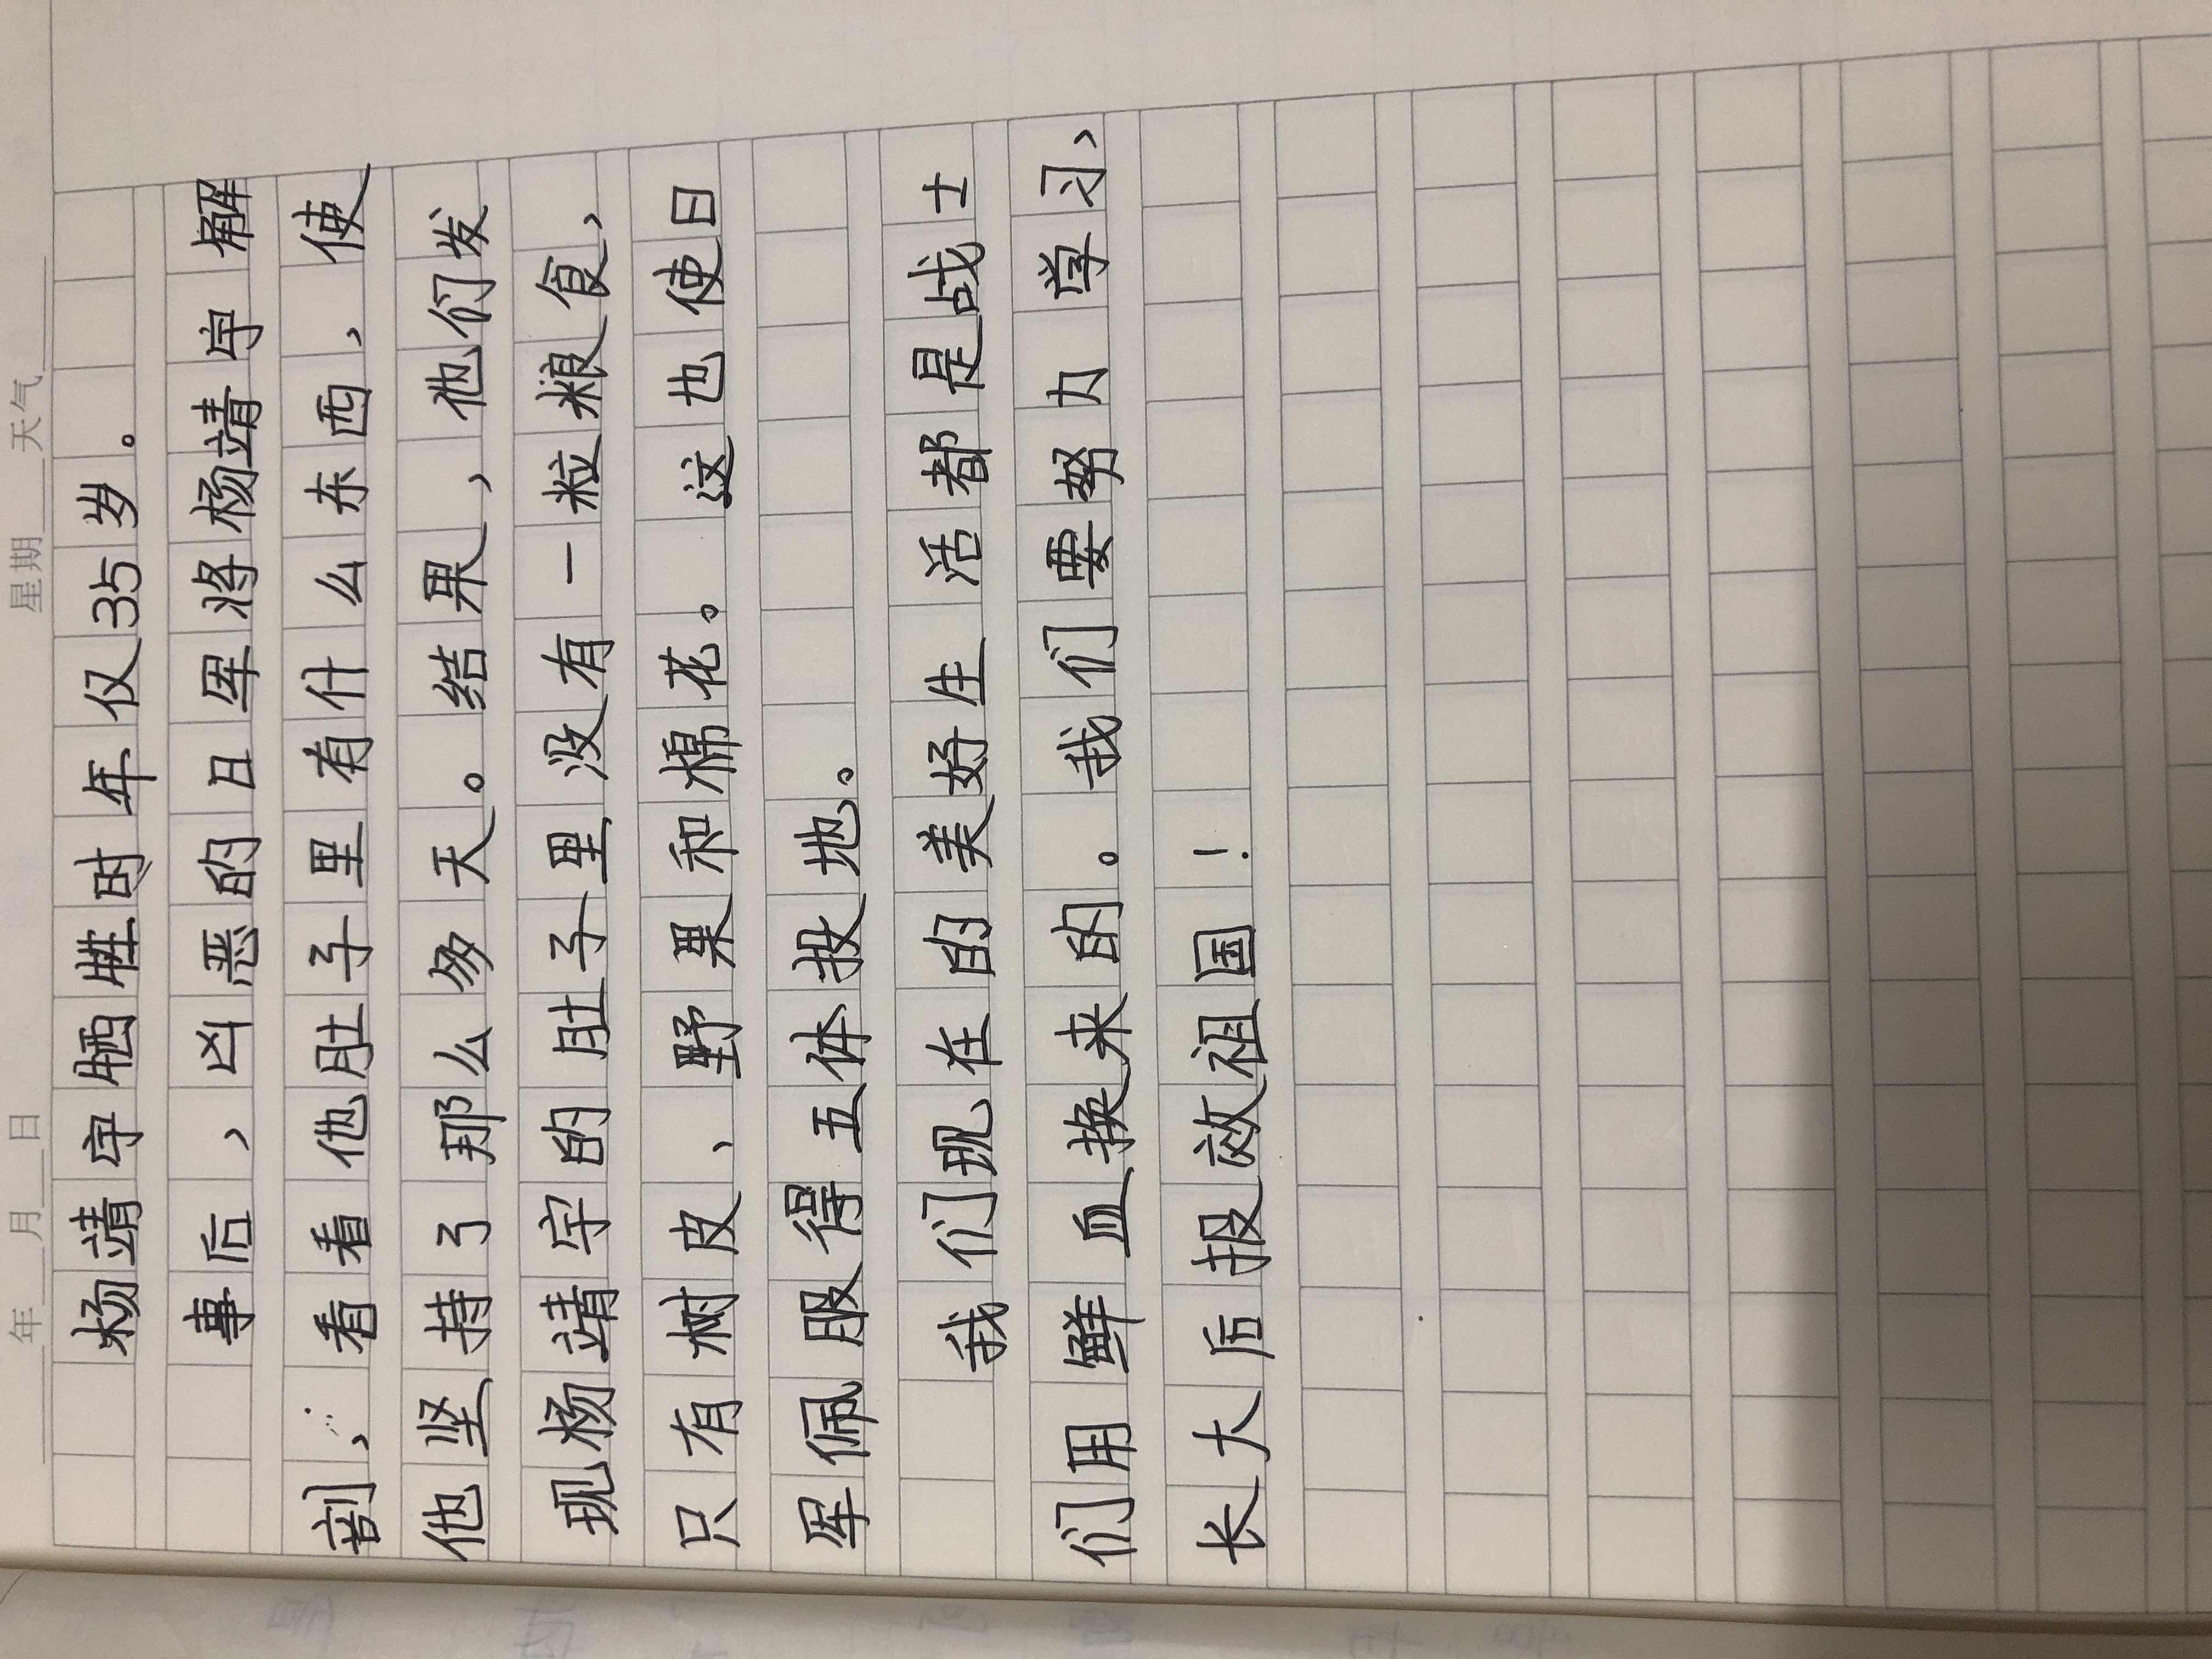 年 月 日 星期 天气
杨靖宇牺牲时年仅35岁。
事后，凶恶的日军将杨靖宇解
剖，看看他肚子里有什么东西，使
他坚持了那么多天。结果，他们发
现杨靖宇的肚子里没有一粒粮食，
只有树皮、野果和棉花。这也使日
军佩服得五体投地。
我们现在的美好生活都是战士
们用鲜血换来的。我们要努力学习，
长大后报效祖国！